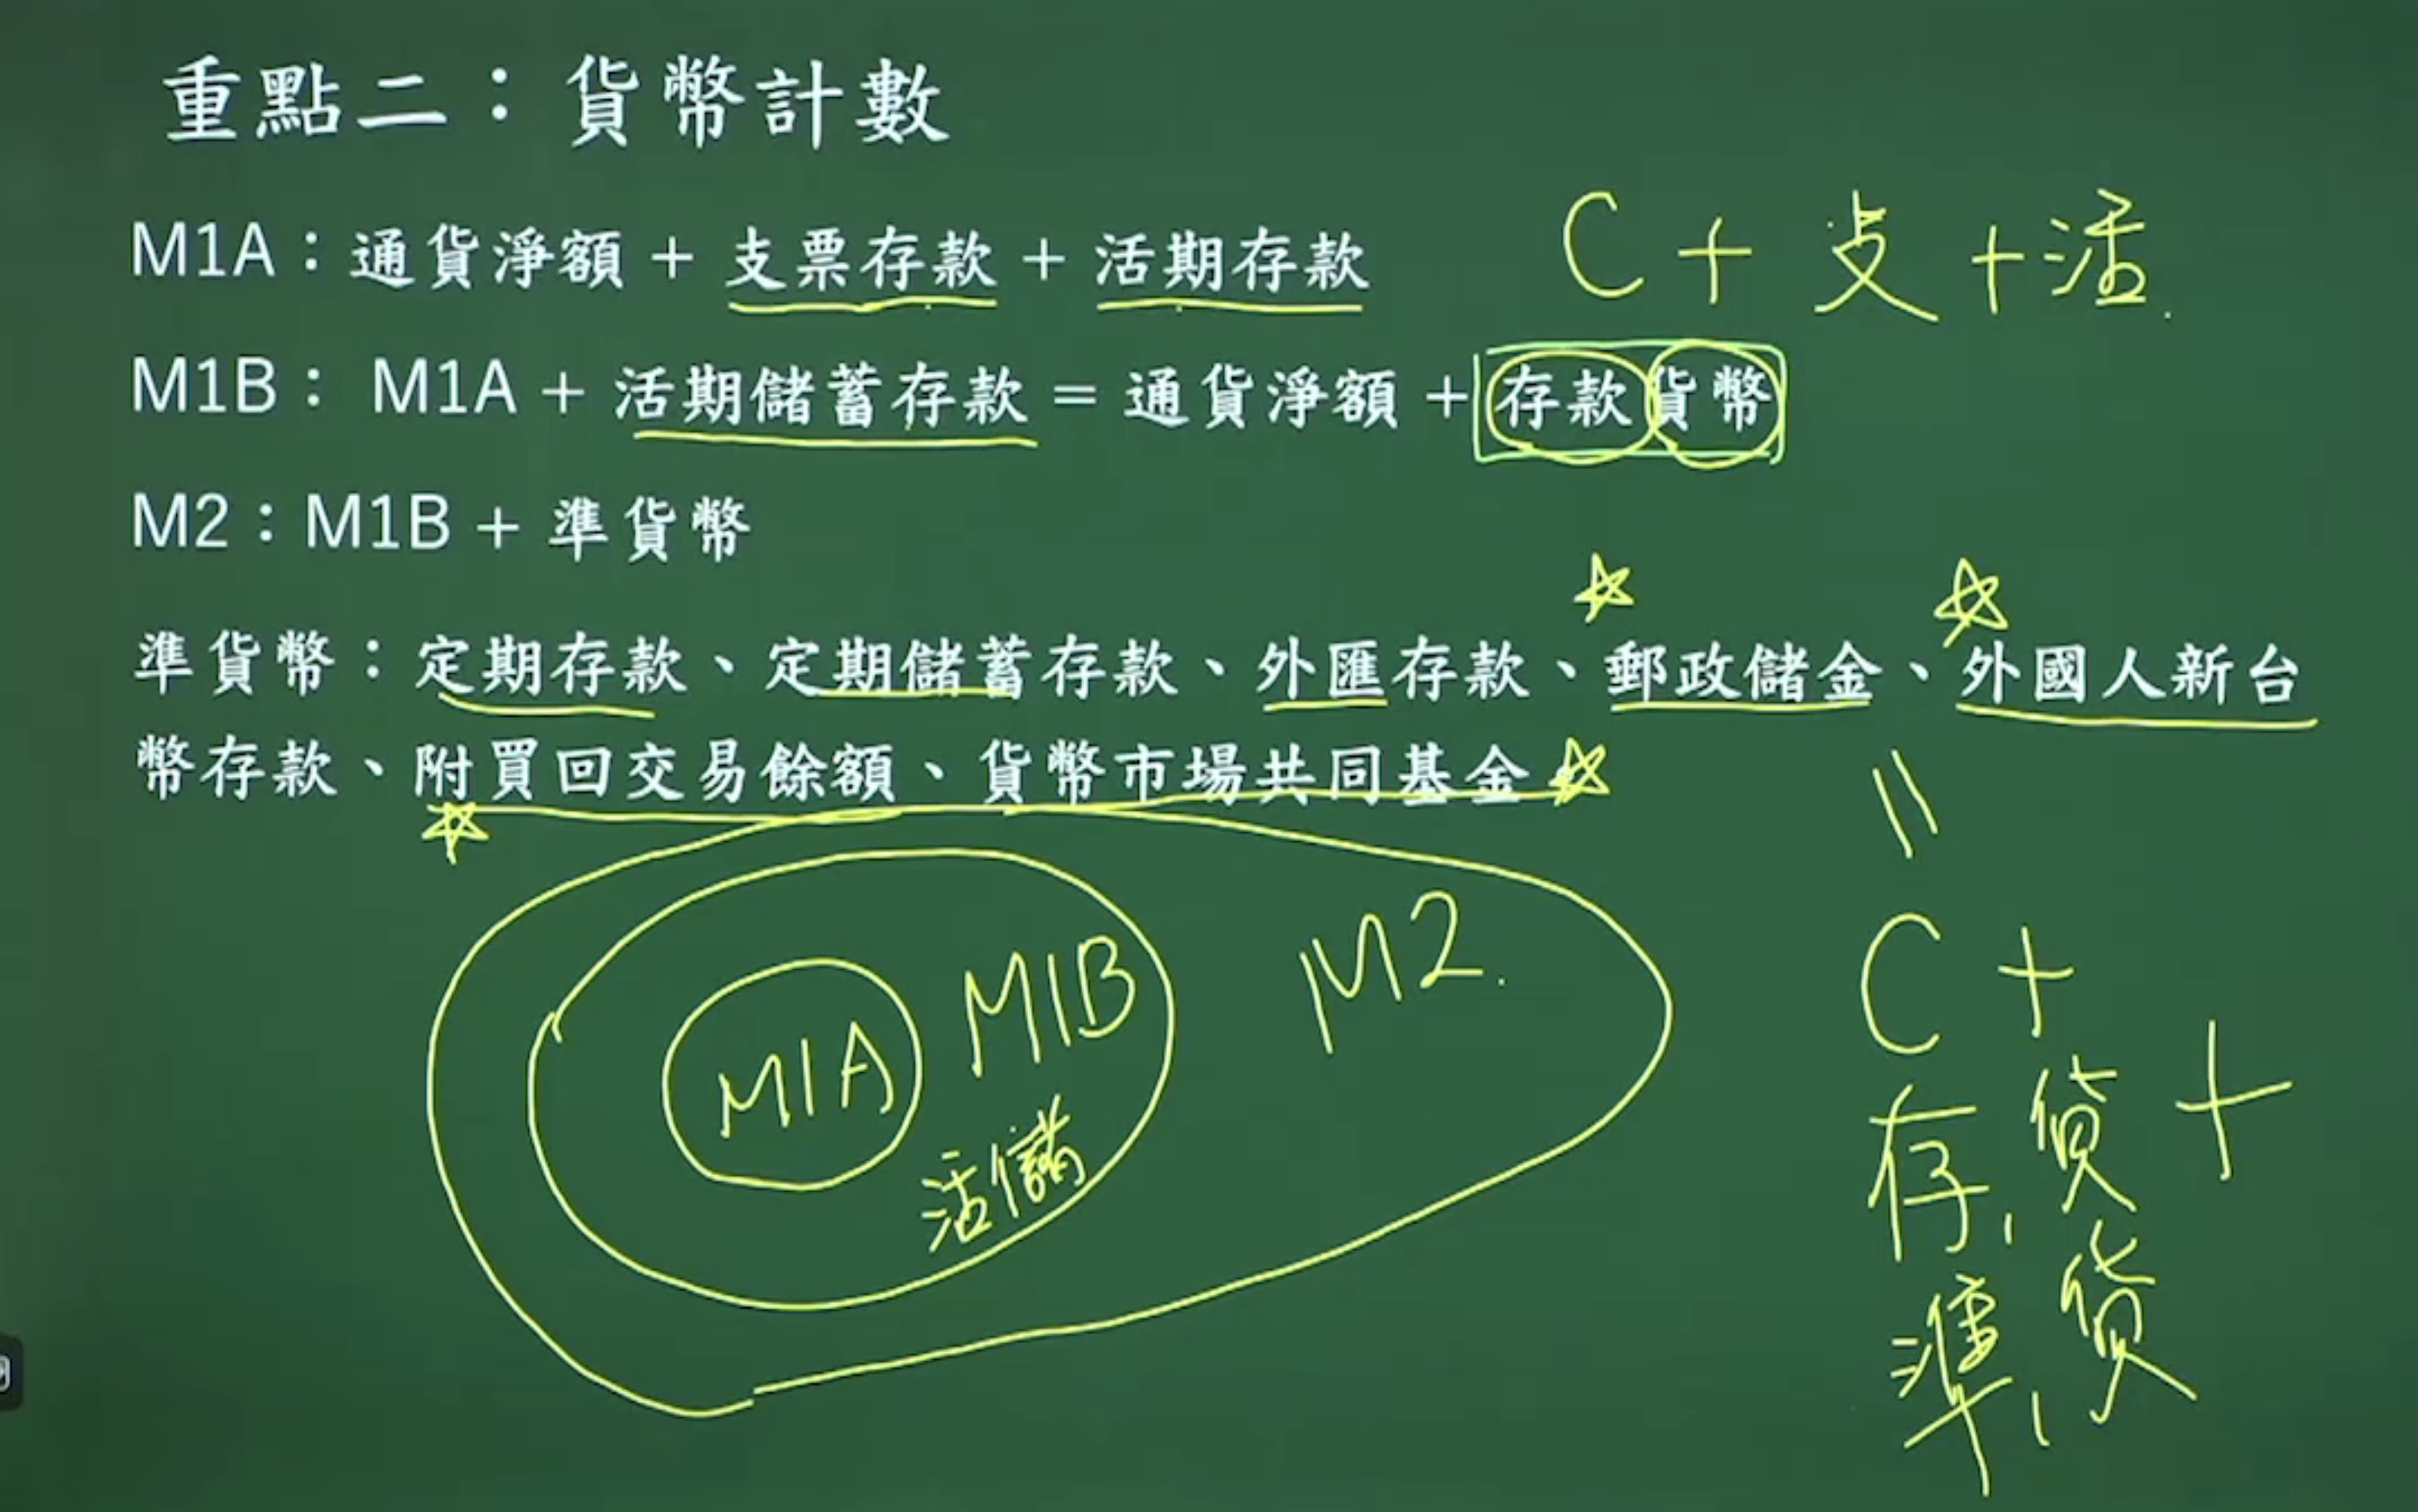 重點二：貨幣計數
M1A：通貨淨額 + 支票存款 + 活期存款
C + 支 + 活
M1B： M1A + 活期儲蓄存款 = 通貨淨額 + 存款貨幣
M2：M1B + 準貨幣
準貨幣：定期存款、定期儲蓄存款、外匯存款、郵政儲金、外國人新台
幣存款、附買回交易餘額、貨幣市場共同基金
M1A
M1B
活儲
M2
=
C +
存.貨 +
準.貨